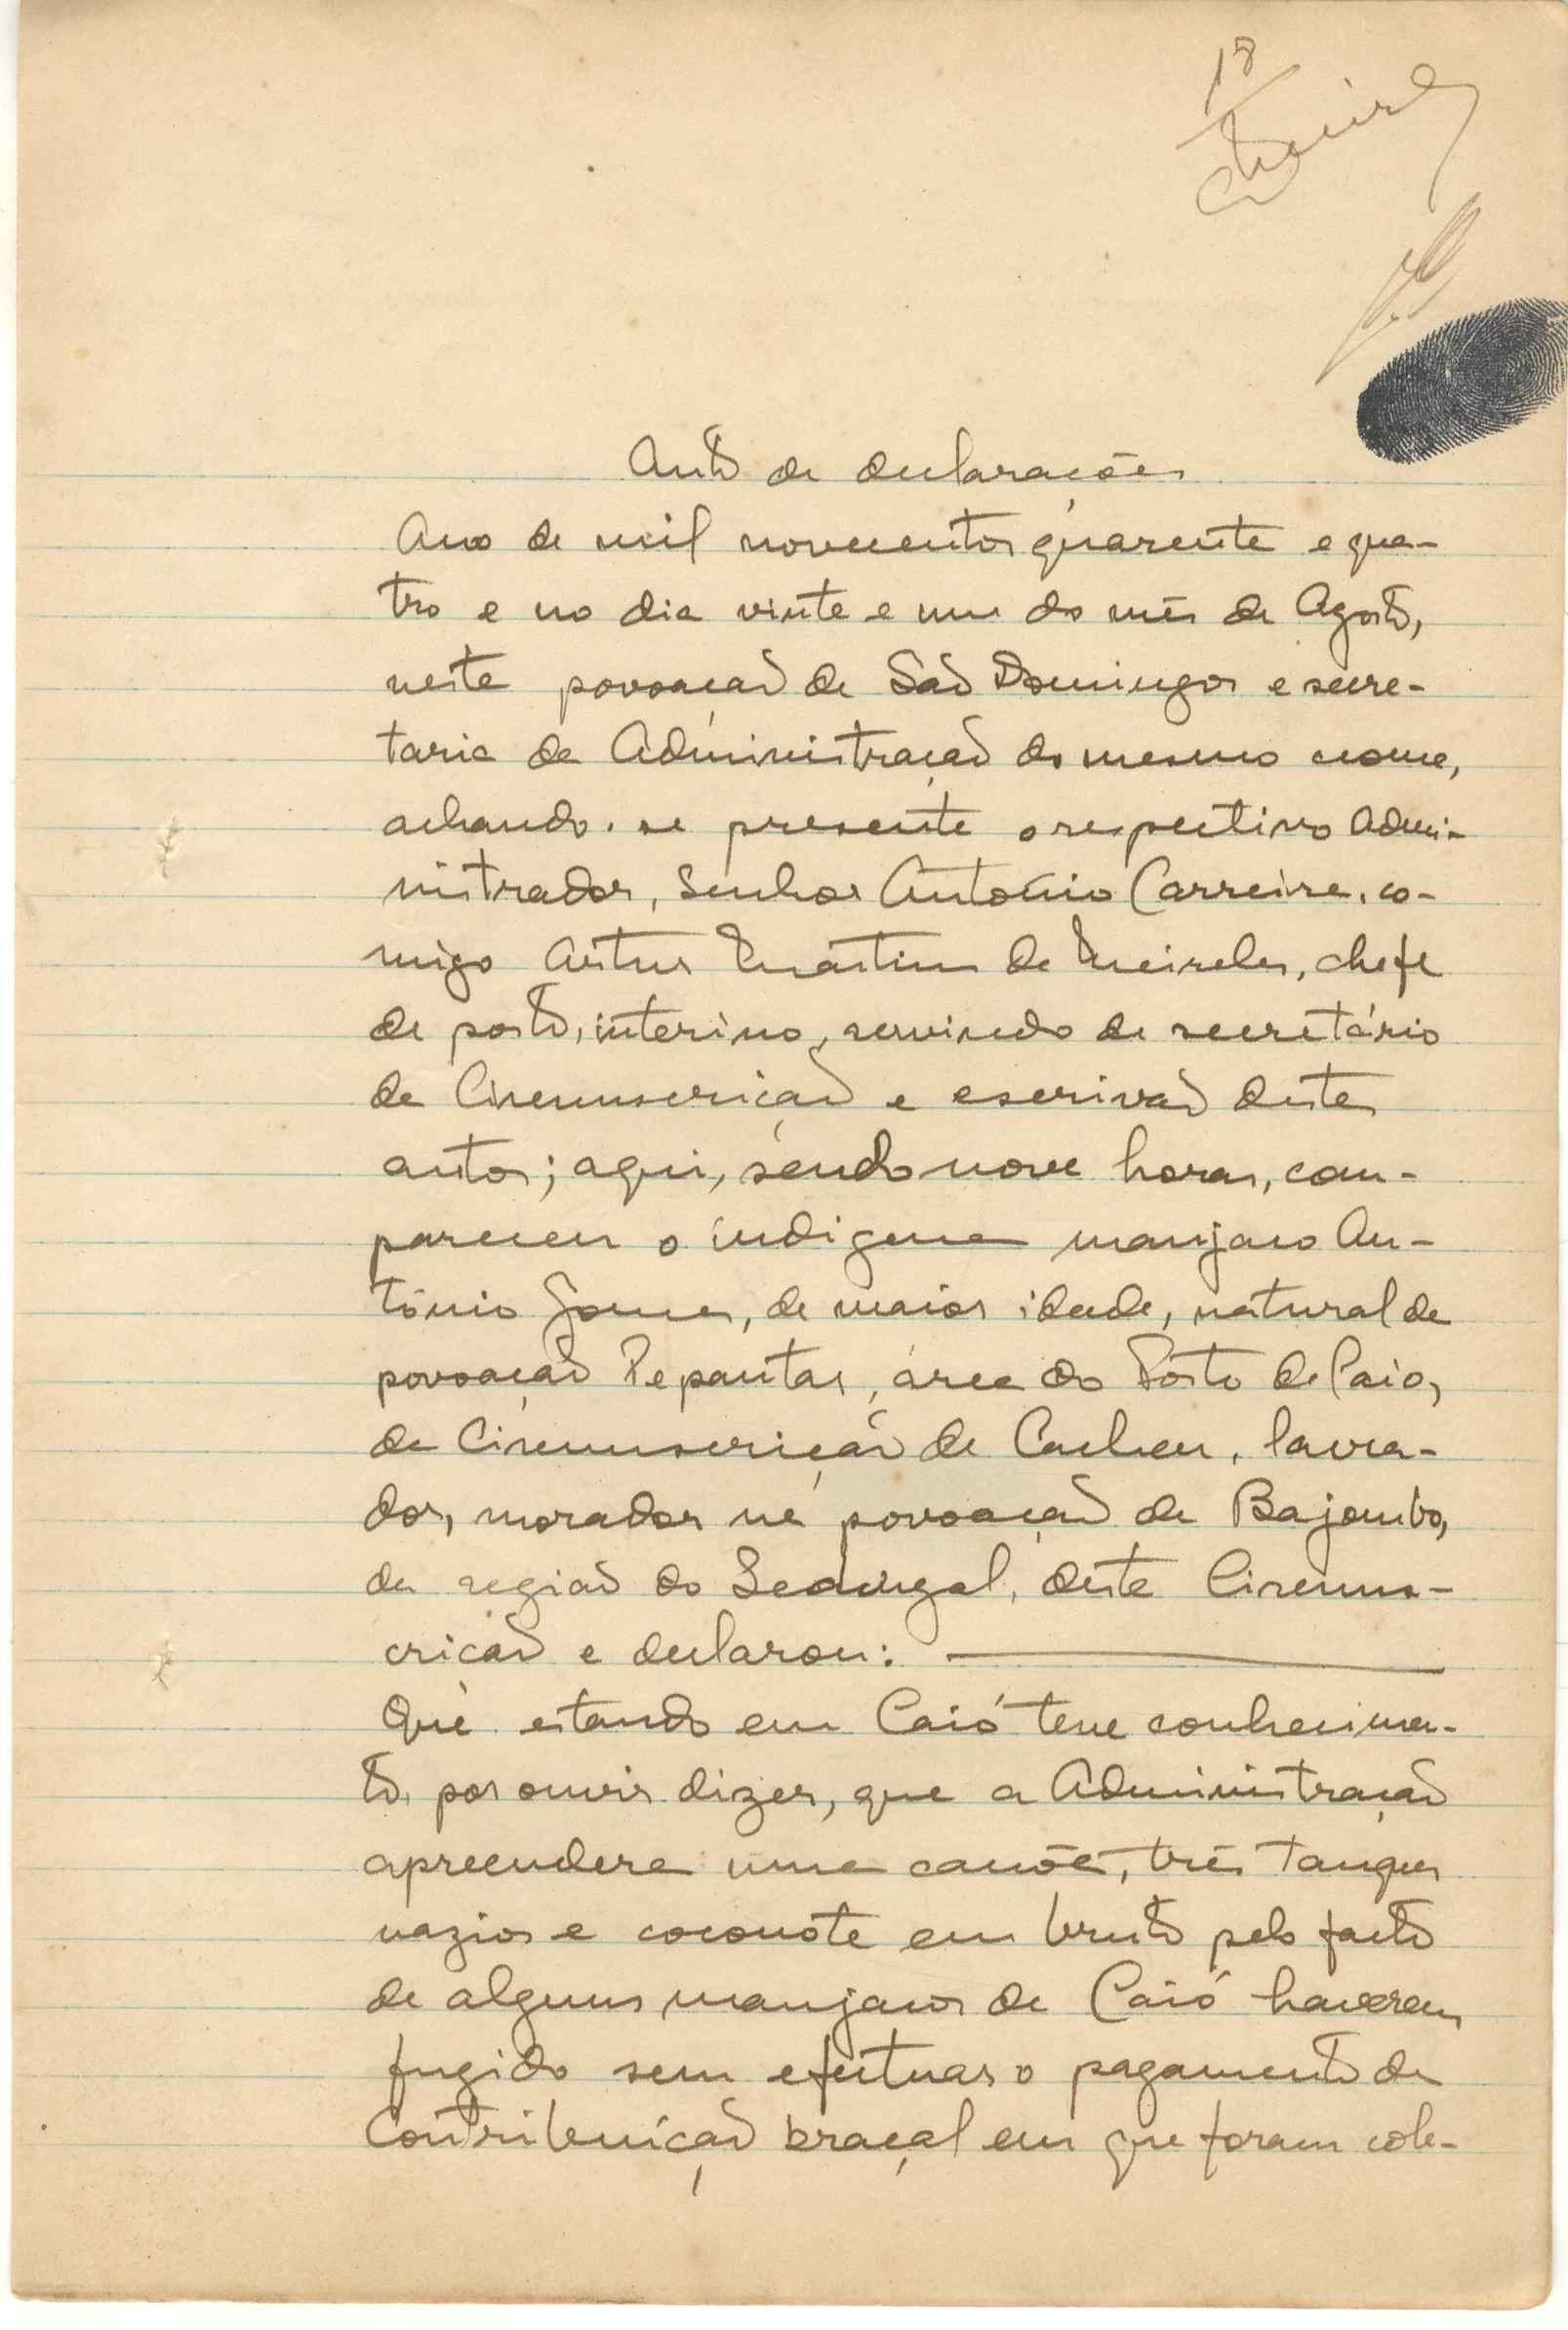 18
Auto de declarações
Ano de mil novecentos quarenta e qua-
tro e no dia vinte e um do mês de Agosto,
nesta povoação de São Domingos e secre-
taria da Administração do mesmo nome,
achando-se presente o respectivo Admi-
nistrador, Senhor António Carreira, co-
migo Artur Martins de Meireles, chefe
de posto, interino, servindo de secretário
da Circunscrição e escrivão destes
autos; aqui, sendo nove horas, com-
pareceu o indígena manjaco An-
tónio Gomes, de maior idade, natural da
povoação Pepantas, área do Pôsto de Caió,
da Circunscrição de Cacheu, lavra-
dor, morador na povoação de Bajombo,
da região do Sedengal, desta Circuns-
crição e declarou:
Que estando em Caió teve conhecimen-
to, por ouvir dizer, que a Administração
apreendera uma canôa, três tanques
vazios e coconote em bruto pelo facto
de alguns manjacos de Caió haverem
fugido sem efectuar o pagamento da
Contribuíção braçal em que foram cole-